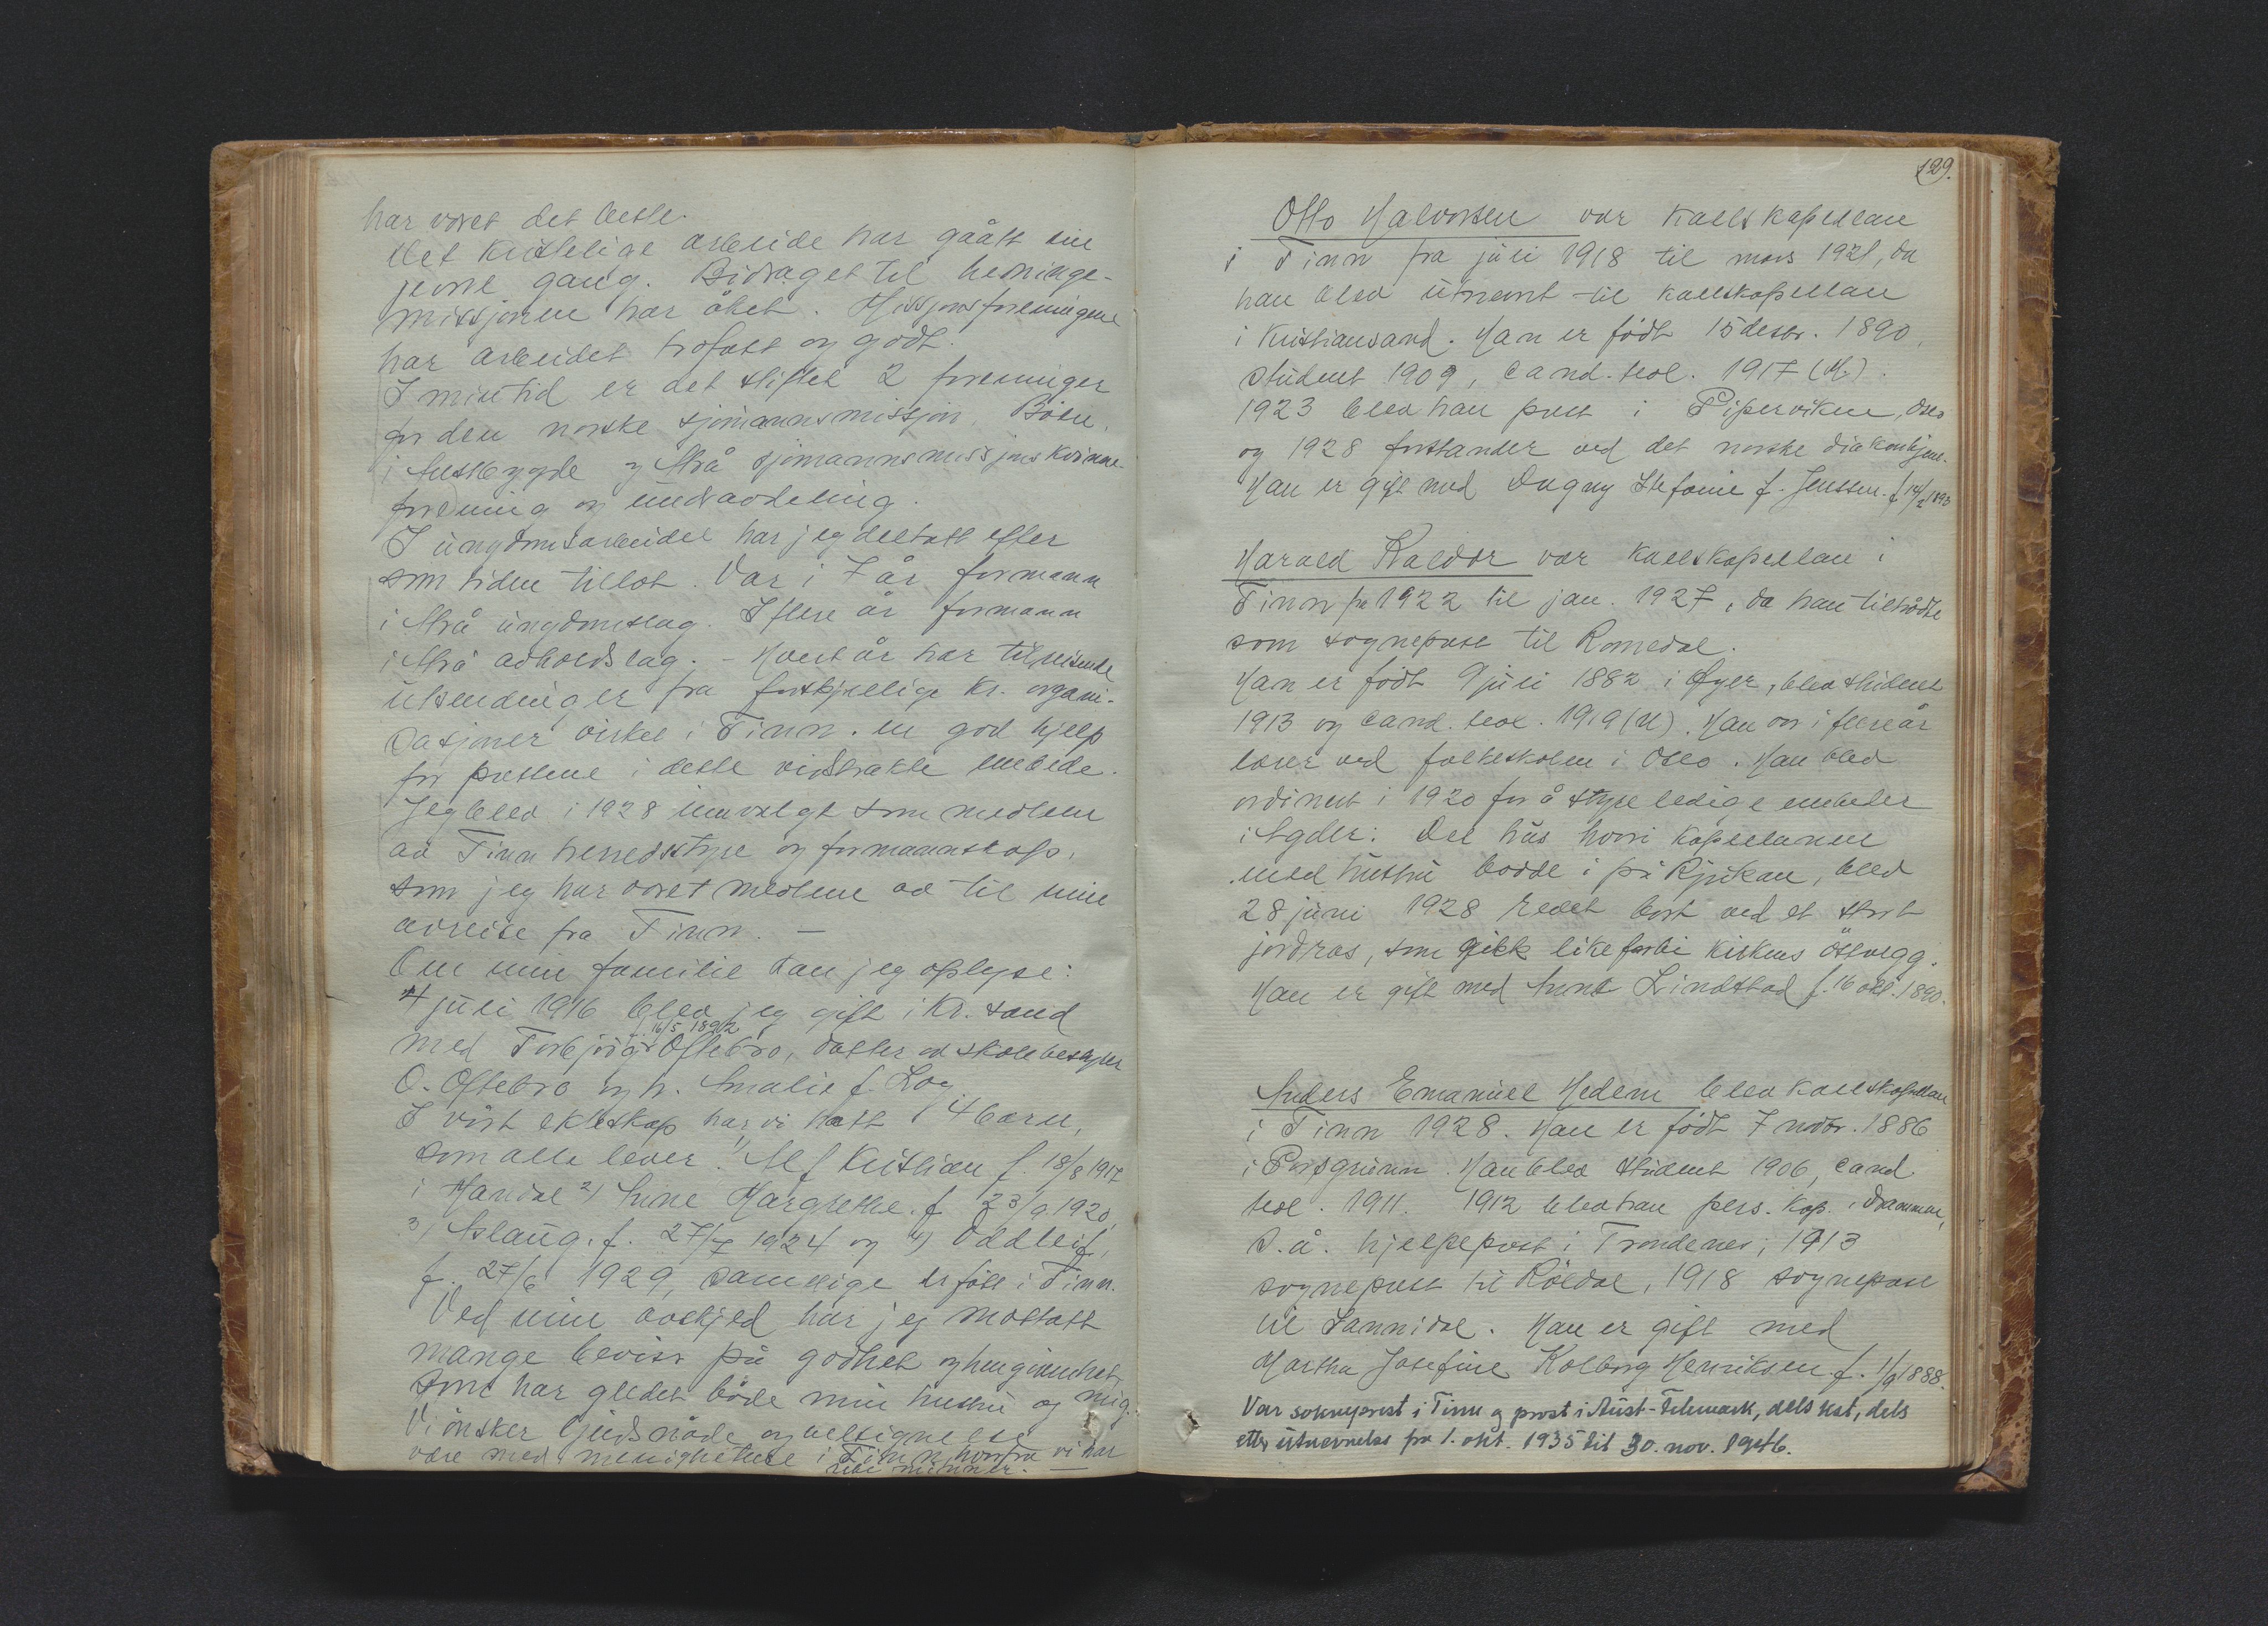 har været det beste.
Det kristelige arbeide har gåått sin
jevne gang. Bidraget til hedninge-
missjonen har øket. Missjonsforeningene
har arbeidet trofast og godt.
I min tid er det stiftet 2 foreninger
for den norske sjømannsmissjon,
i Austbygde og Mså sjømannsmissjons kvinne-
forening og
I ungdomsarbeidet har jeg deltatt efter
som tiden tillot. Var i 7 år formann
i Mså ungdomslag. I flere år formann
i Mså avholdslag. - Hvert år har tilreisende
utsendinger fra forskjellige kr. organi-
sasjoner virket i Tinn. en god hjelp
for prestene i dette vidstrakte embede.
Jeg blev i 1928 innvalgt som medlem
av Tinn herredsstyre og formannskap,
som jeg har været medlem av til min
avreise fra Tinn. —
Om min familie kan jeg oplyse:
4 juli 1916 blev jeg gift i Kr. sand
f. 16/5 1892
med Torbjørg Oftebro, datter av skolebestyrer
O. Oftebro og h. Amalie f. Log
I vårt ekteskap har vi hatt 4 barn,
som alle lever. 1) Alf Kristian f. 18/8 1917
i Mandal 2) Anne Margrethe. f 23/9 1920,
3) Aslaug. f. 27/7 1924 og 4) Oddleif,
f. 27/6 1929, samtlige er født i Tinn.
Ved min avskjed har jeg mottatt
mange beviser på godhet og hengivenhet,
som har gledet både min hustru og mig.
Vi ønsker Guds nåde og velsignelse
være med menighetene i Tinn, hvorfra vi har
minner. —
129.
Otto Halvorsen var kallskapellan
i Tinn fra juli 1918 til mars 1921, da
han blev utnevnt til kallskapellan
i Kristiansand. Han er født 15 desbr. 1890,
student 1909, cand. teol. 1917 (M.).
1923 blev han prest i Piperviken, Oslo
og 1928 forstander ved det norske diakonhjem.
Han er gift med Dagny Stefanie f. Jenssen. f 14/2 1893
Harald Kaldor var kallskapellan i
Tinn fra 1922 til jan. 1927, da han tiltrådte
som sogneprest til Romedal.
Han er født 9 juli 1882 i Øyer, blev student
1913 og cand. teol. 1919 (M). Han var i flere år
lærer ved folkeskolen i Oslo. Han blev
ordinert i 1920 for å styre ledige embeder
i Agder. Det hus hvori kapellanen
med hustru bodde i på Rjukan, blev
28 juni 1928 revet bort ved et stort
jordras, som gikk like forbi kirkens østvegg.
Han er gift med Anna Lindstad f. 16 okt. 1890.
Anders Emanuel Hedem blev kallskapellan
i Tinn 1928. Han er født 7 novbr. 1886
i Porsgrunn. Han blev student 1906, cand
teol. 1911. 1912 blev han pers. kap. i Drammen,
s. å. hjelpeprest i Trondenes; 1913
sogneprest til Røldal, 1918 sogneprest
til Sannidal. Han er gift med
Martha Josefine Kolborg Henriksen f. 1/9 1888.
Var sokneprest i Tinn og prost i Aust-Telemark, dels kst, dels
etter utnevnelse fra 1. okt. 1935 til 30. nov. 1946.